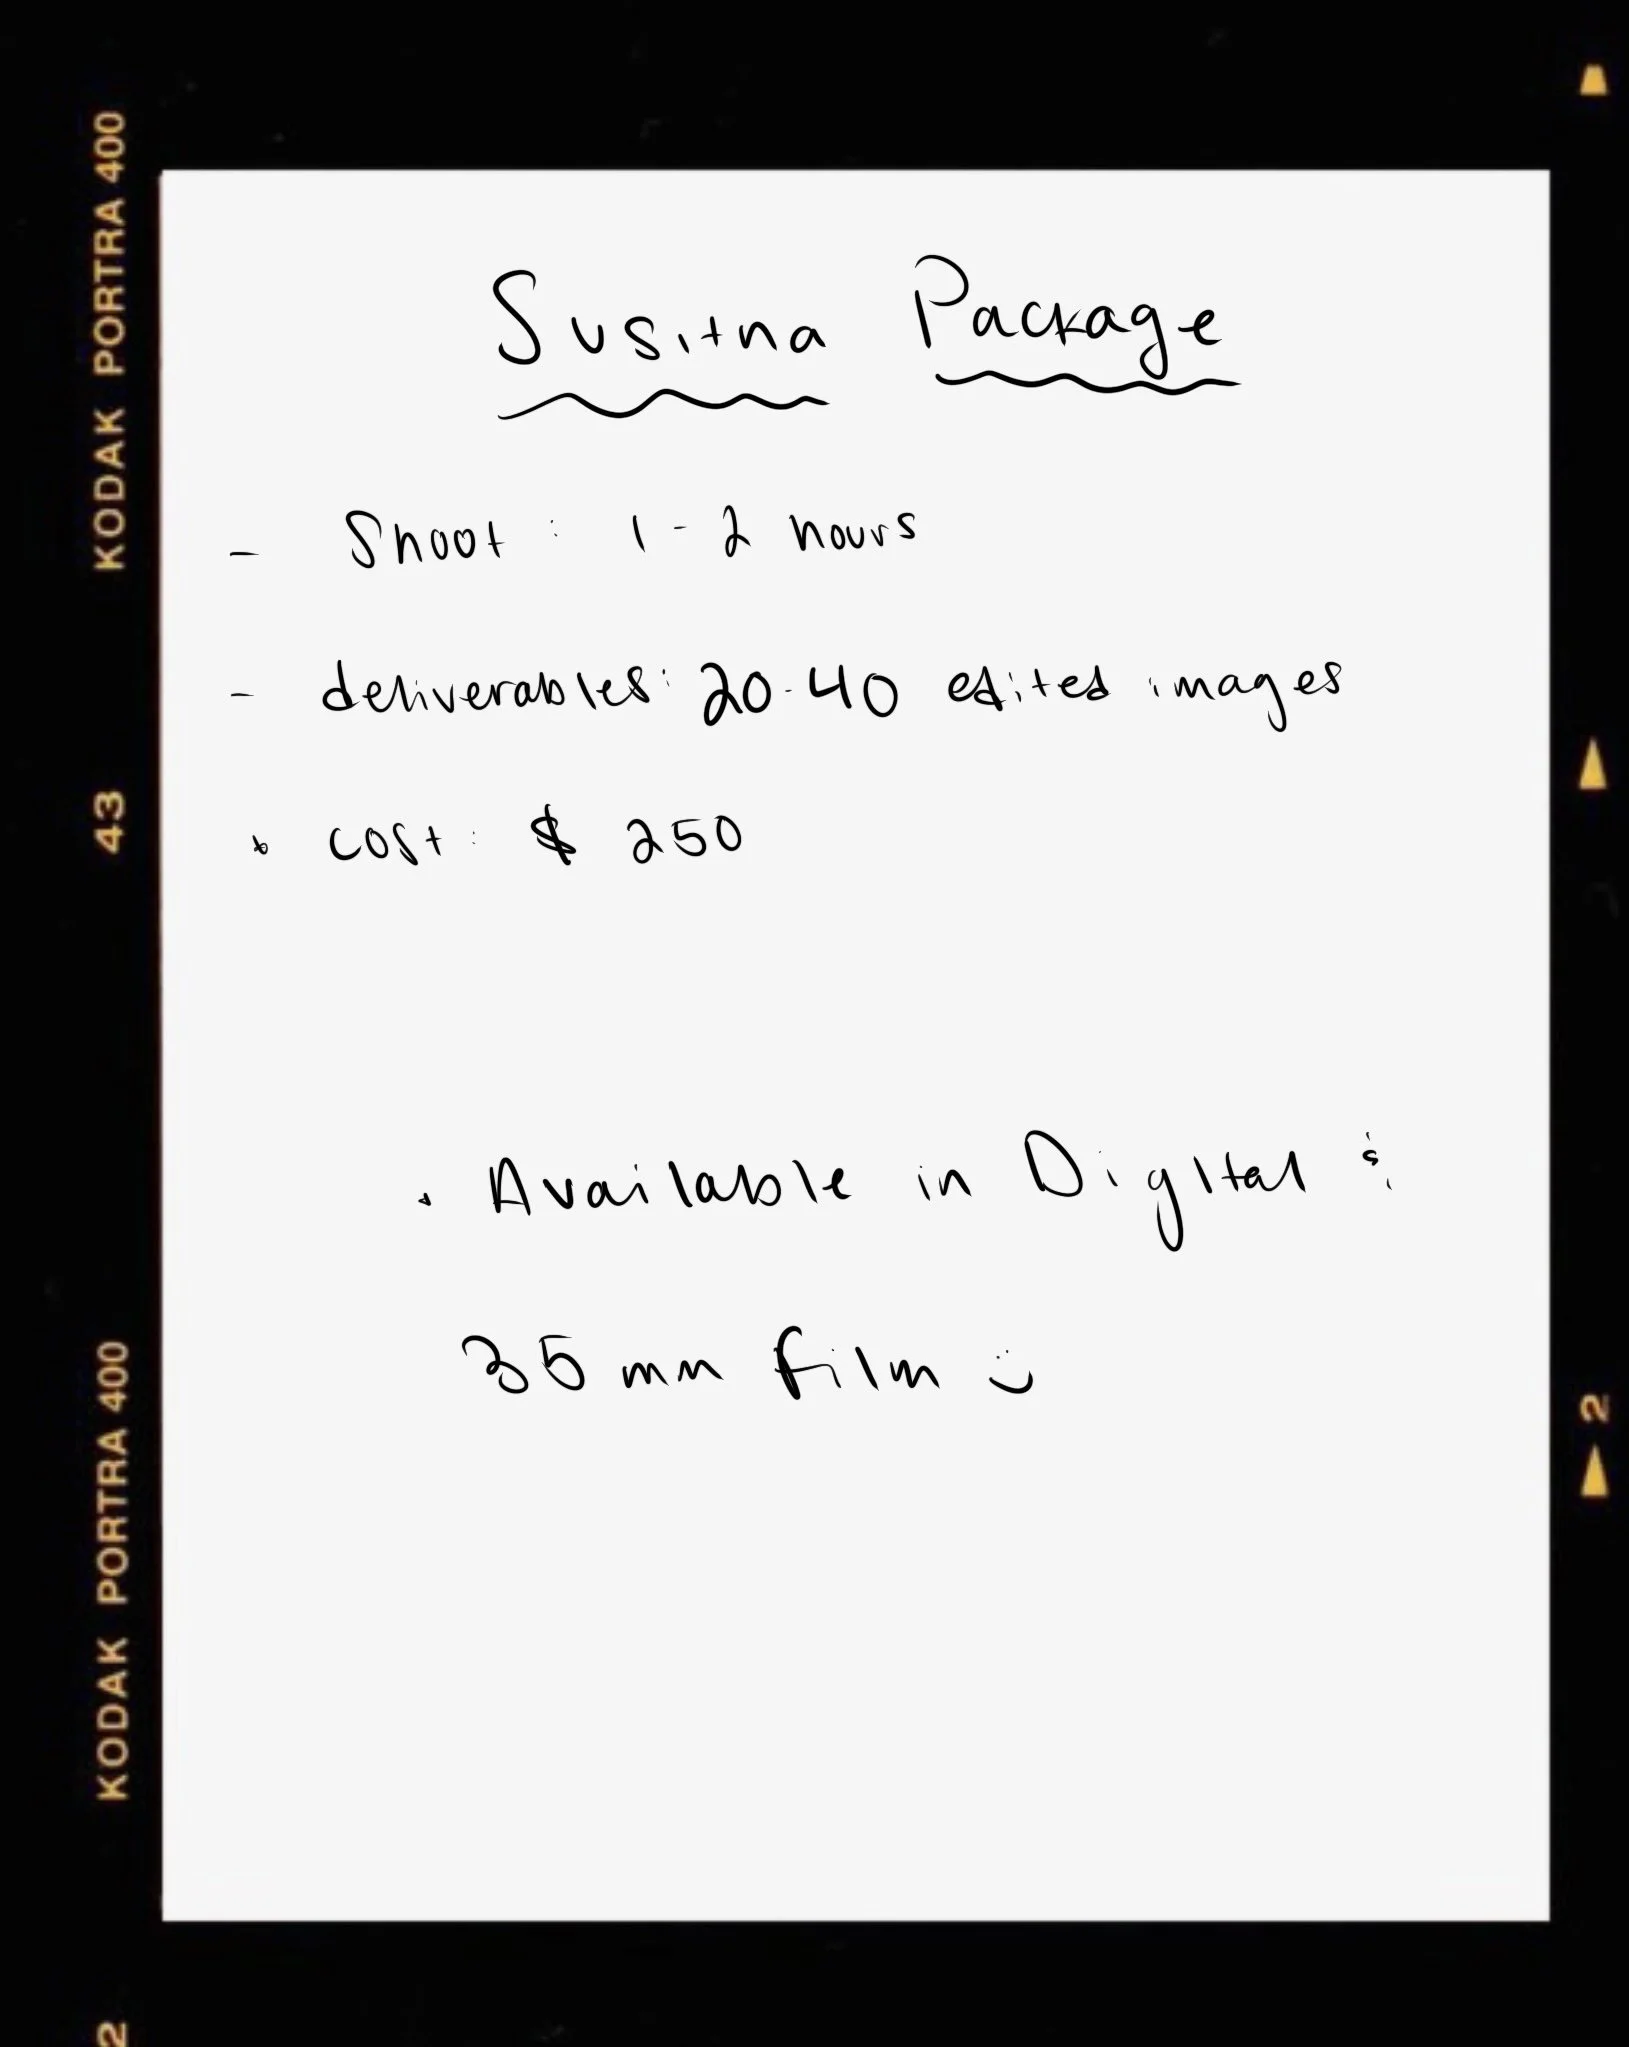 Susitna Package
- Shoot: 1-2 hours
- deliverables: 20-40 edited images
• cost: $ 250
• Available in Digital &
35 mm film :)
KODAK PORTRA 400
43
KODAK PORTRA 400
2
2